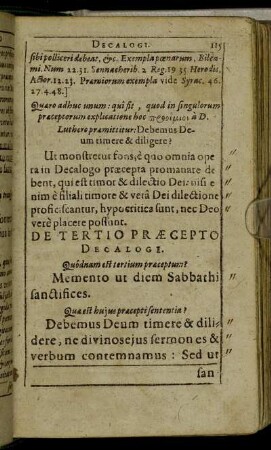 DECALOGI. 115
sibi polliceri debeat, &c. Exempla pœnarum, Bileā-
mi. Num 22. 31. Sennacherib. 2 Reg. 19 35 Herodis,
Actor. 12. 23. Præmiorum exempla vide Syrac. 46.
27. 4. 48.]
Quæro adhuc unum: qui fit, quod in singulorum
præceptorum explicatione hoc à D.
Luthero præmittitur: Debemus De-
um timere & diligere?
Ut monstretur fons, è quo omnia ope
ra in Decalogo præcepta promanare de
bent, qui est timor & dilectio Dei: nisi e
nim è filiali timore & verâ Dei dilectione
proficiscantur, hypocritica sunt, nec Deo
verè placere possunt.
DE TERTIO PRÆCEPTO
DECALOGI.
Quodnam est tertium præceptum?
Memento ut diem Sabbathi
sanctifices.
Quæ est hujus præcepti sententia?
Debemus Deum timere & dili
dere, ne divinos ejus sermones &
verbum contemnamus: Sed ut
san